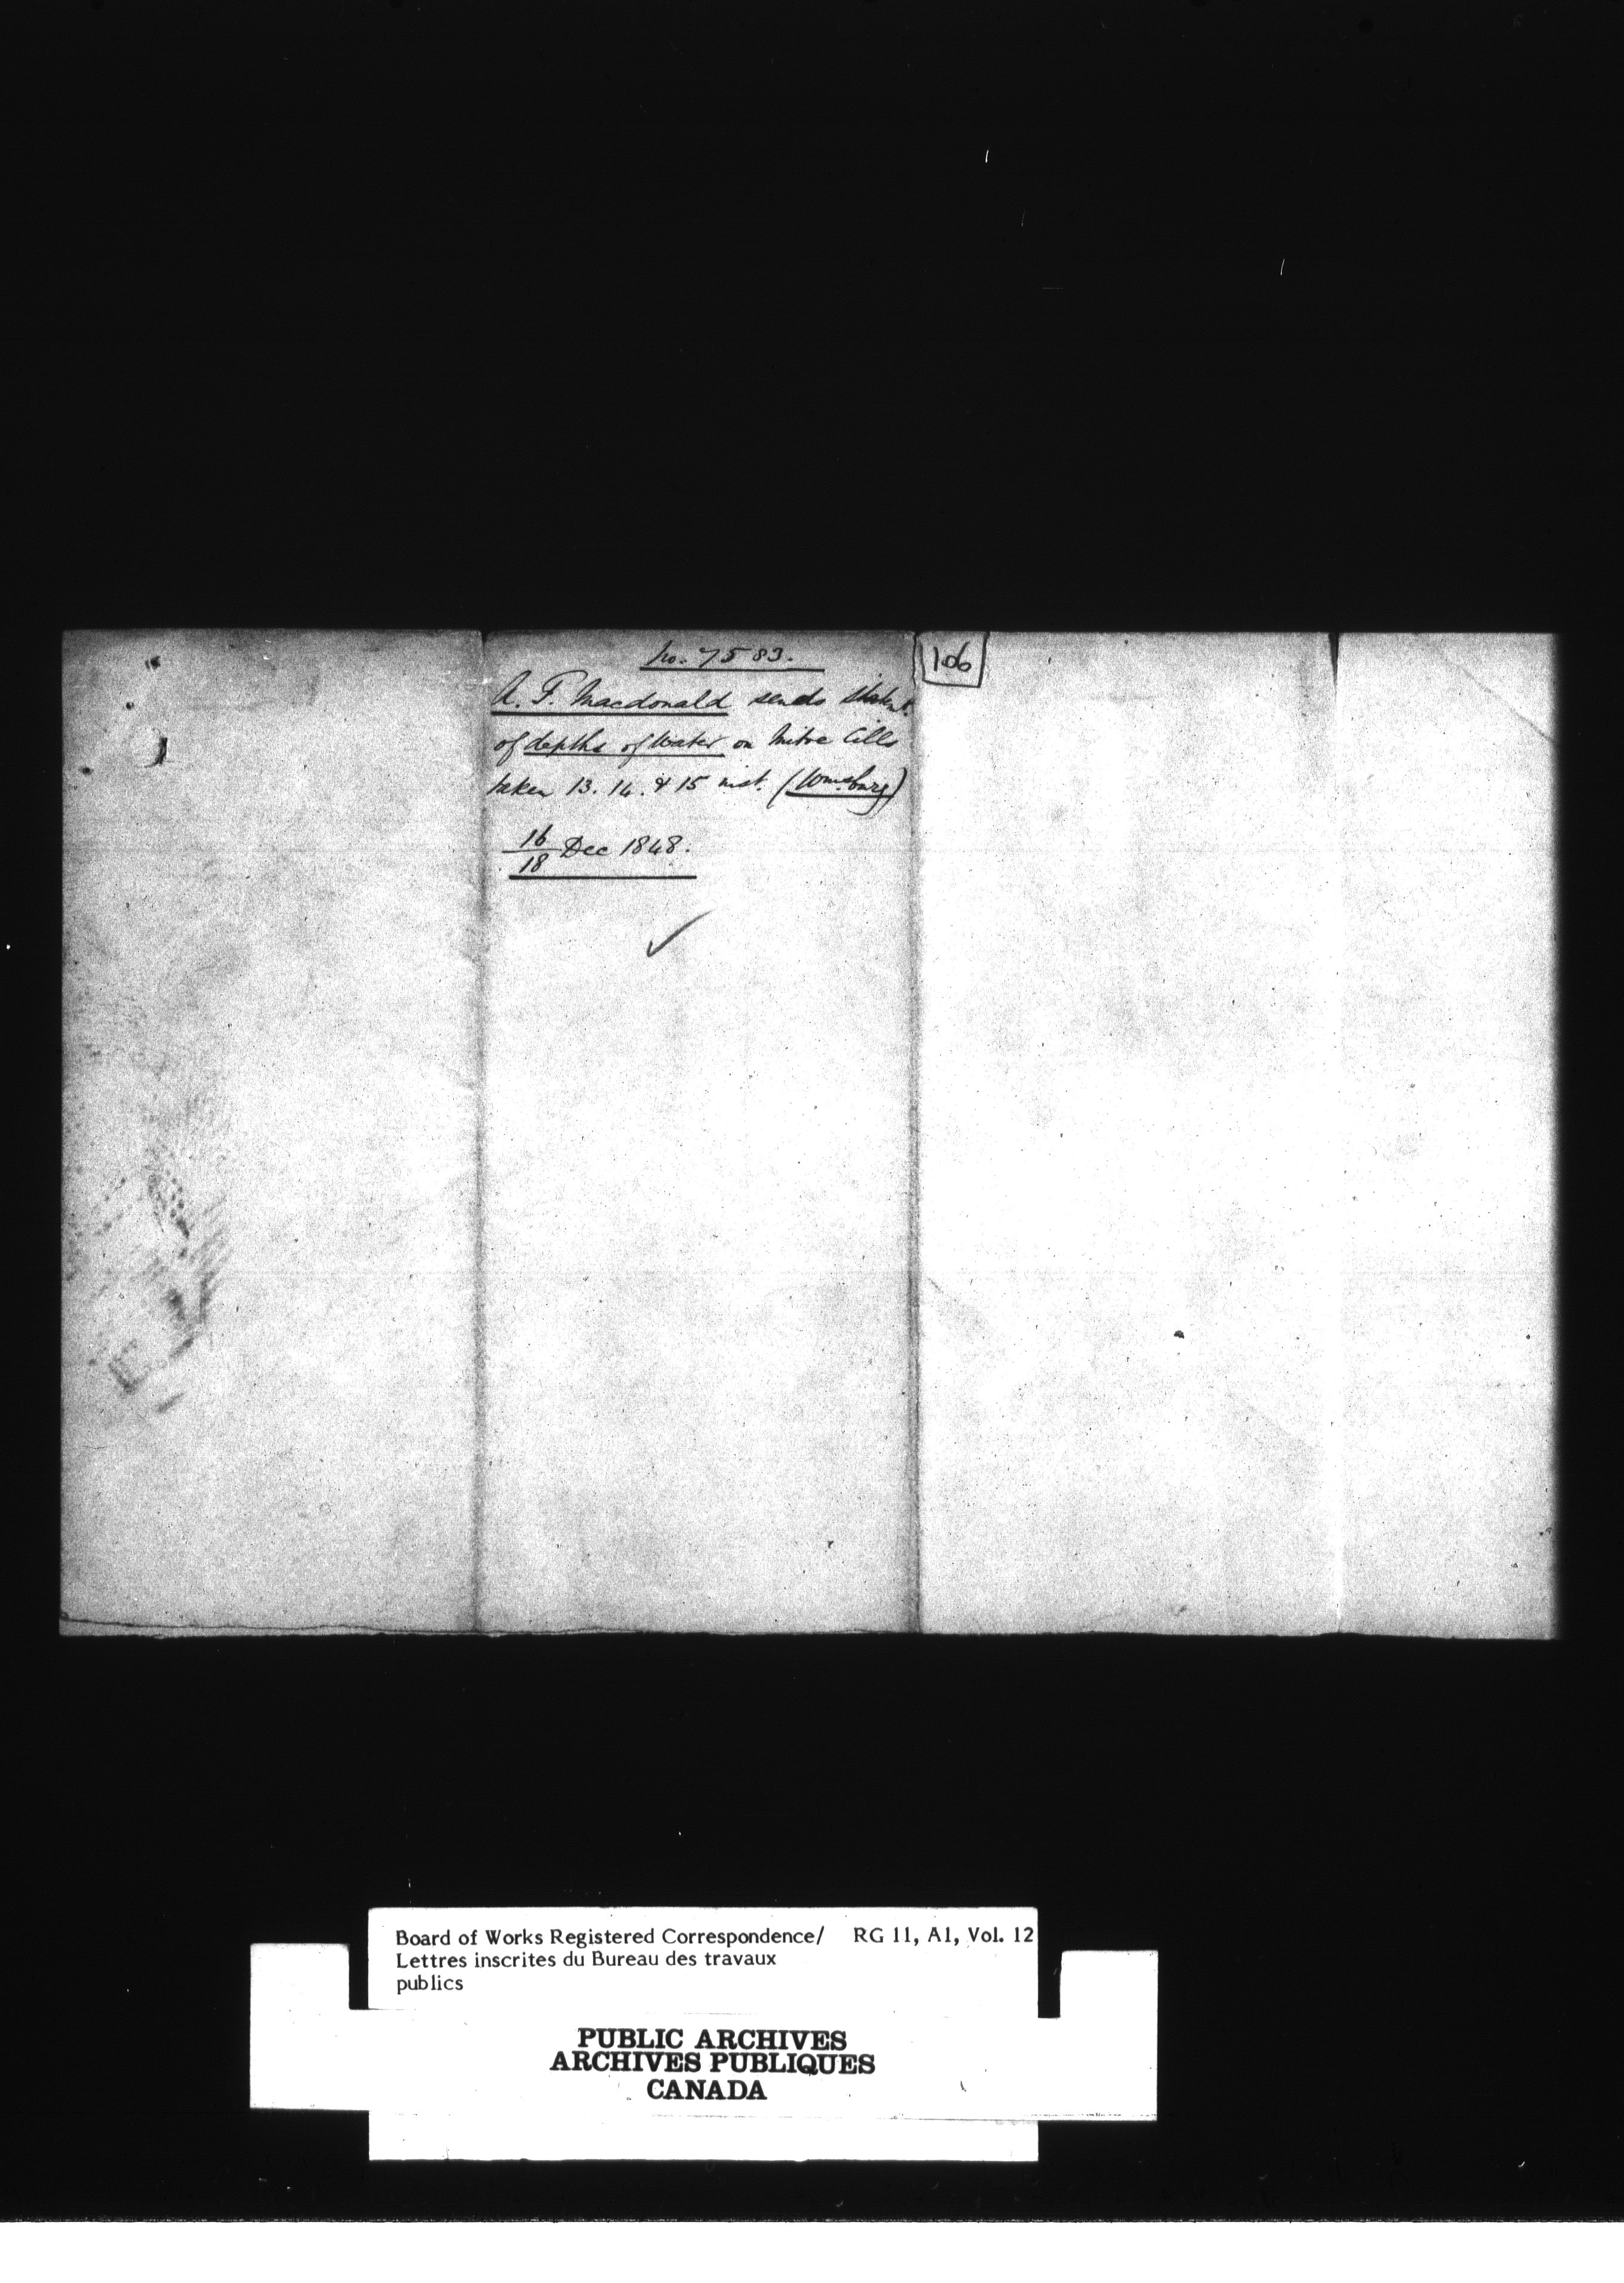 No. 7583.
106
A. F. Macdonald sends Statemt.
of depths of Water on Mitre Cills
taken 13. 14. & 15 inst. (Wmsburg)
16/18 Dec 1848.
Board of Works Registered Correspondence/ RG 11, A1, Vol. 12
Lettres inscrites du Bureau des travaux
publics
PUBLIC ARCHIVES
ARCHIVES PUBLIQUES
CANADA